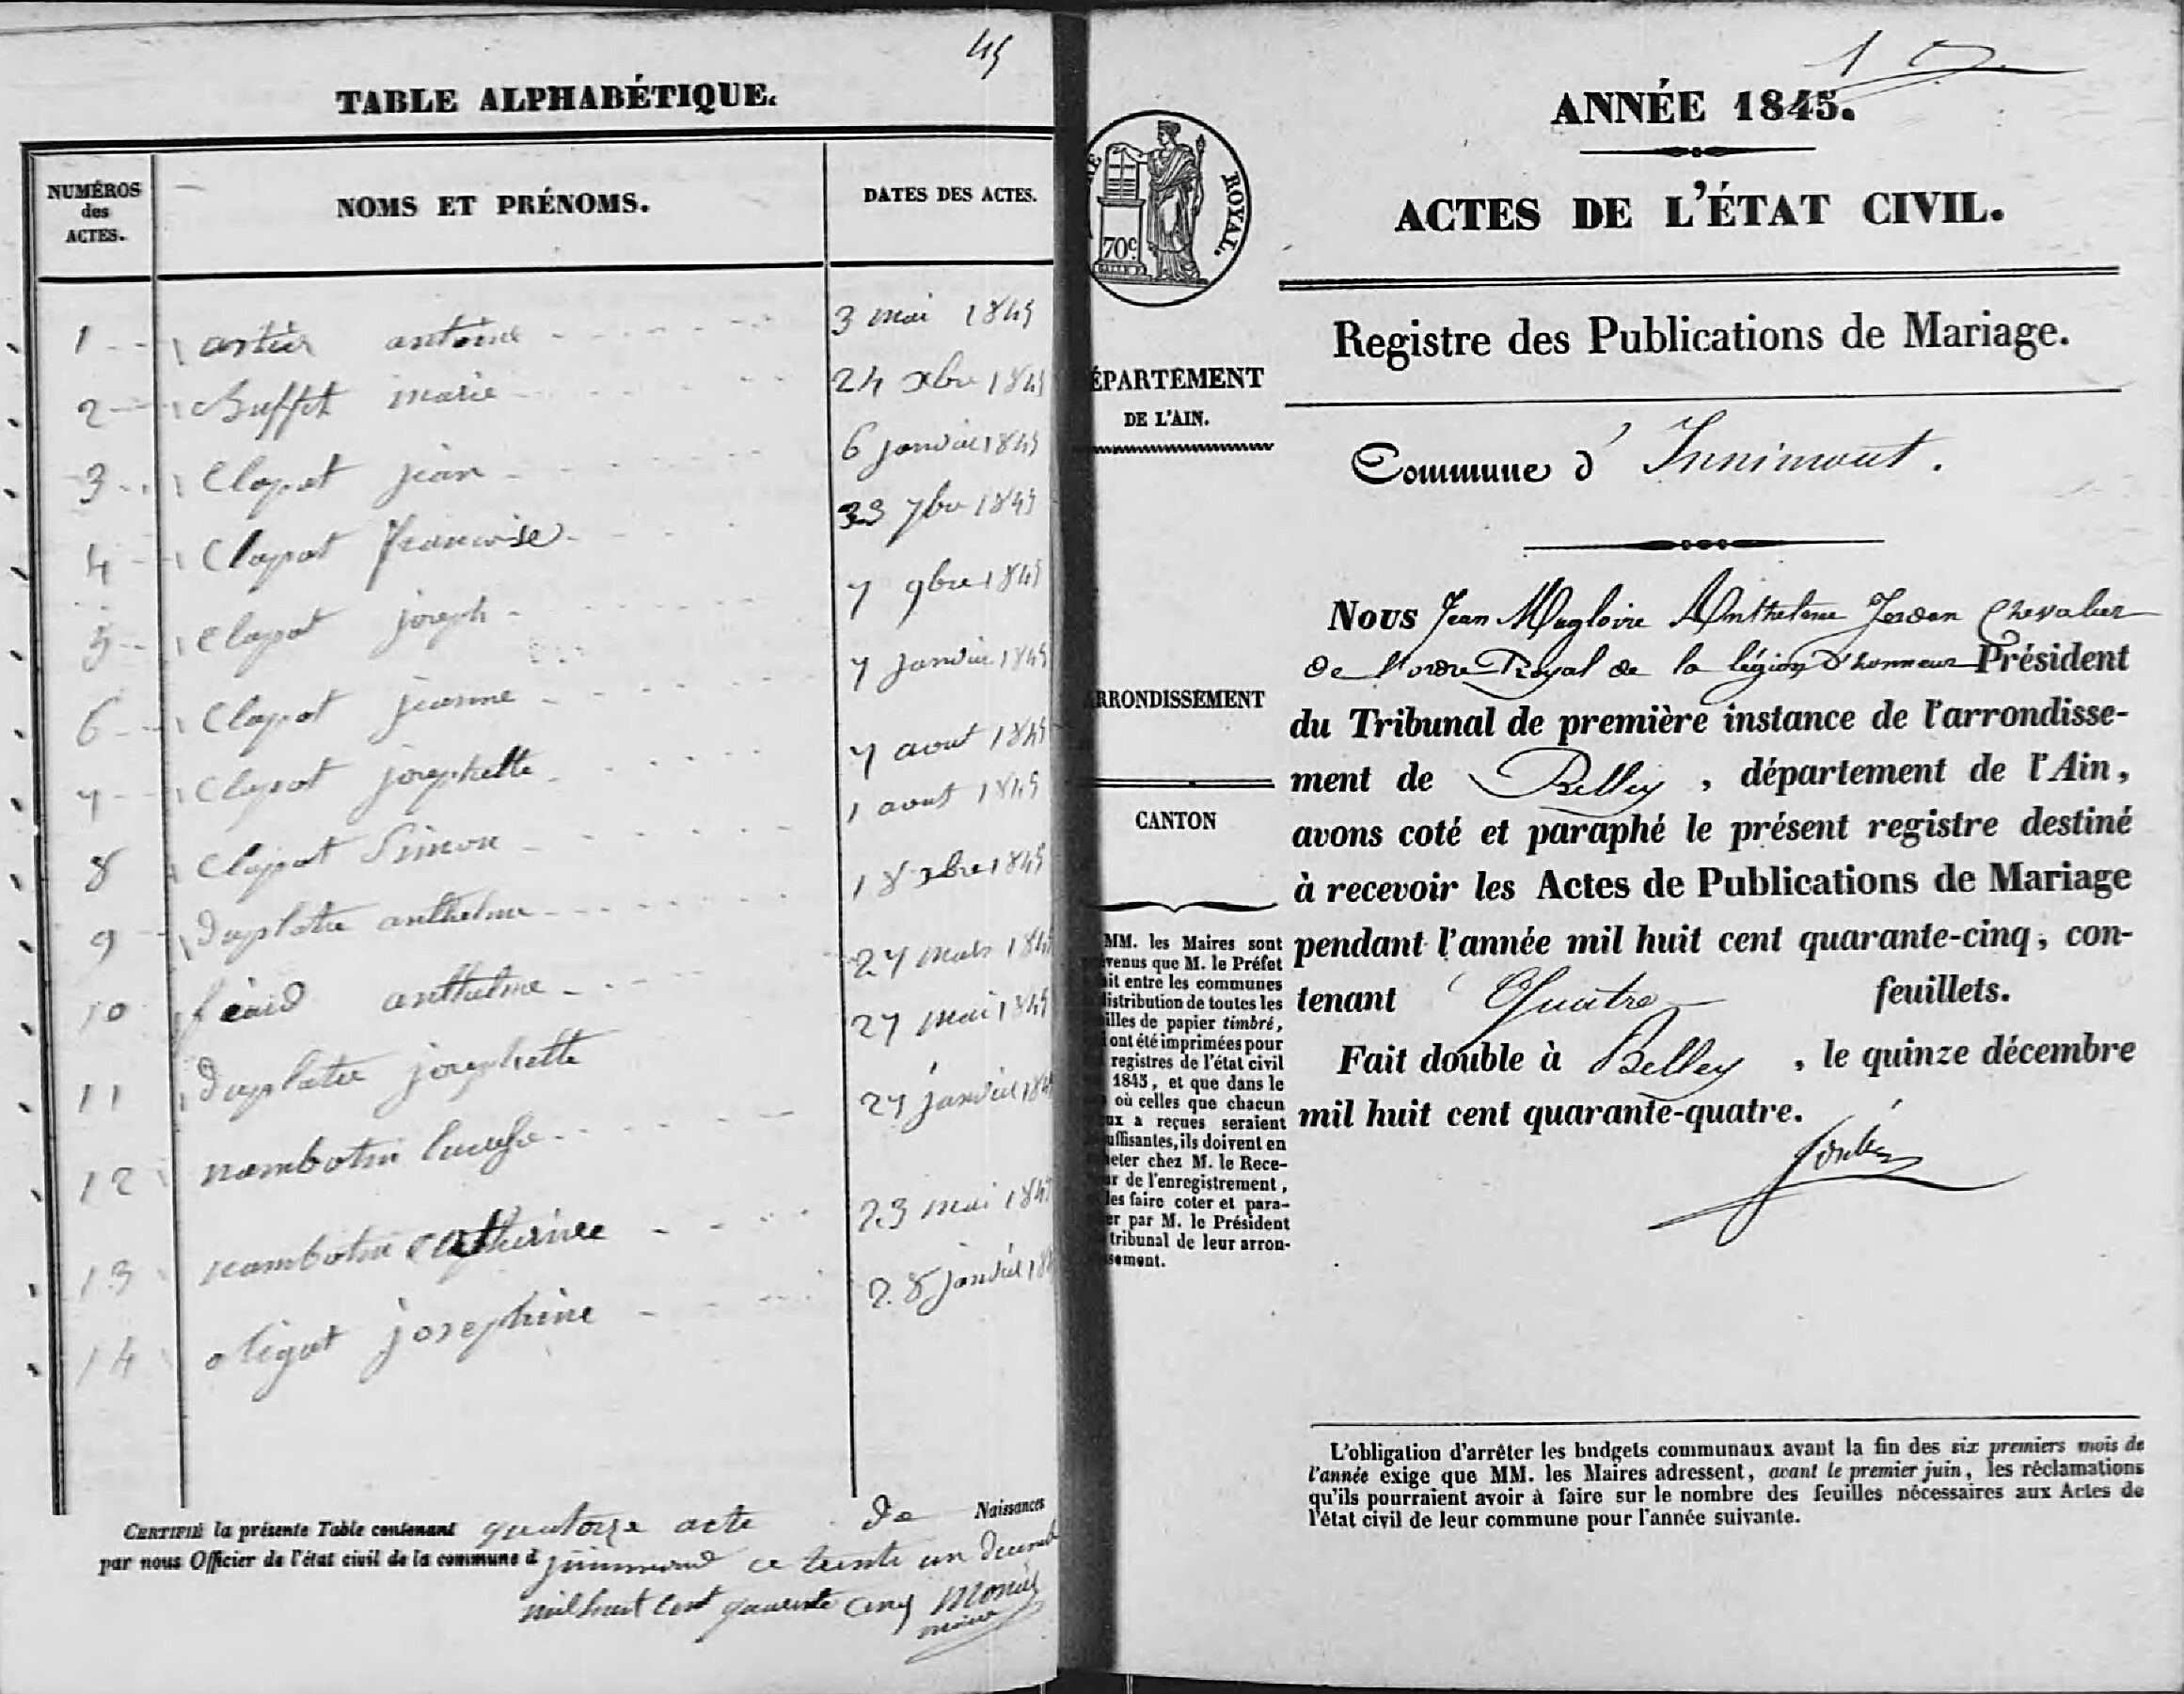 45
TABLE ALPHABÉTIQUE.
NUMÉROS
des
ACTES.
NOMS ET PRÉNOMS.
DATES DES ACTES.
1 artier antoine 3 mai 1845
2 Buffet marie 24 xbre 1845
3 Clapot jean 6 janvier 1845
4 Clapot francoise 7bre 1845
5 Clapot joseph 7 9bre 1845
6 Clapot jeanne 7 janvier 1845
7 Clapot josephette 7 aout 1845
8 Clapot Simon 1 aout 1845
9 Duplatre anthelme 18 xbre 1845
10 anthelme 27 mars 184
11 Duplatre josephette 27 mai 1845
12 nambotin 27 janvier 184
13 nambotin Catherine 23 mai 184
14 josephine 28 janvier 18
CERTIFIÉ la présente Table contenant quatorze acte de Naissances
par nous Officier de l'état civil de la commune d ce trente un decemb
mil huit cent quarente cinq
maire
1
ANNÉE 1845.
ROYAL.
70c
ACTES DE L'ÉTAT CIVIL.
Registre des Publications de Mariage.
ÉPARTEMENT
DE L'AIN.
Commune d'Innimont.
RRONDISSEMENT
CANTON
MM. les Maires sont
venus que M. le Préfet
it entre les communes
istribution de toutes les
illes de papier timbré,
ont été imprimées pour
registres de l'état civil
1845, et que dans le
où celles que chacun
ux a reçues seraient
uffisantes, ils doivent en
heter chez M. le Rece-
ur de l'enregistrement,
les faire coter et para-
er par M. le Président
tribunal de leur arron-
sement.
Nous Jean Magloire Anthelme Jordan Chevalier
de l'ordre Royal de la légion d'honneur Président
du Tribunal de première instance de l'arrondisse-
ment de Belley, département de l'Ain,
avons coté et paraphé le présent registre destiné
à recevoir les Actes de Publications de Mariage
pendant l'année mil huit cent quarante-cinq, con-
tenant Quatre feuillets.
Fait double à Belley, le quinze décembre
mil huit cent quarante-quatre.
L'obligation d'arrêter les budgets communaux avant la fin des six premiers mois de
l'année exige que MM. les Maires adressent, avant le premier juin, les réclamations
qu'ils pourraient avoir à faire sur le nombre des feuilles nécessaires aux Actes de
l'état civil de leur commune pour l'année suivante.